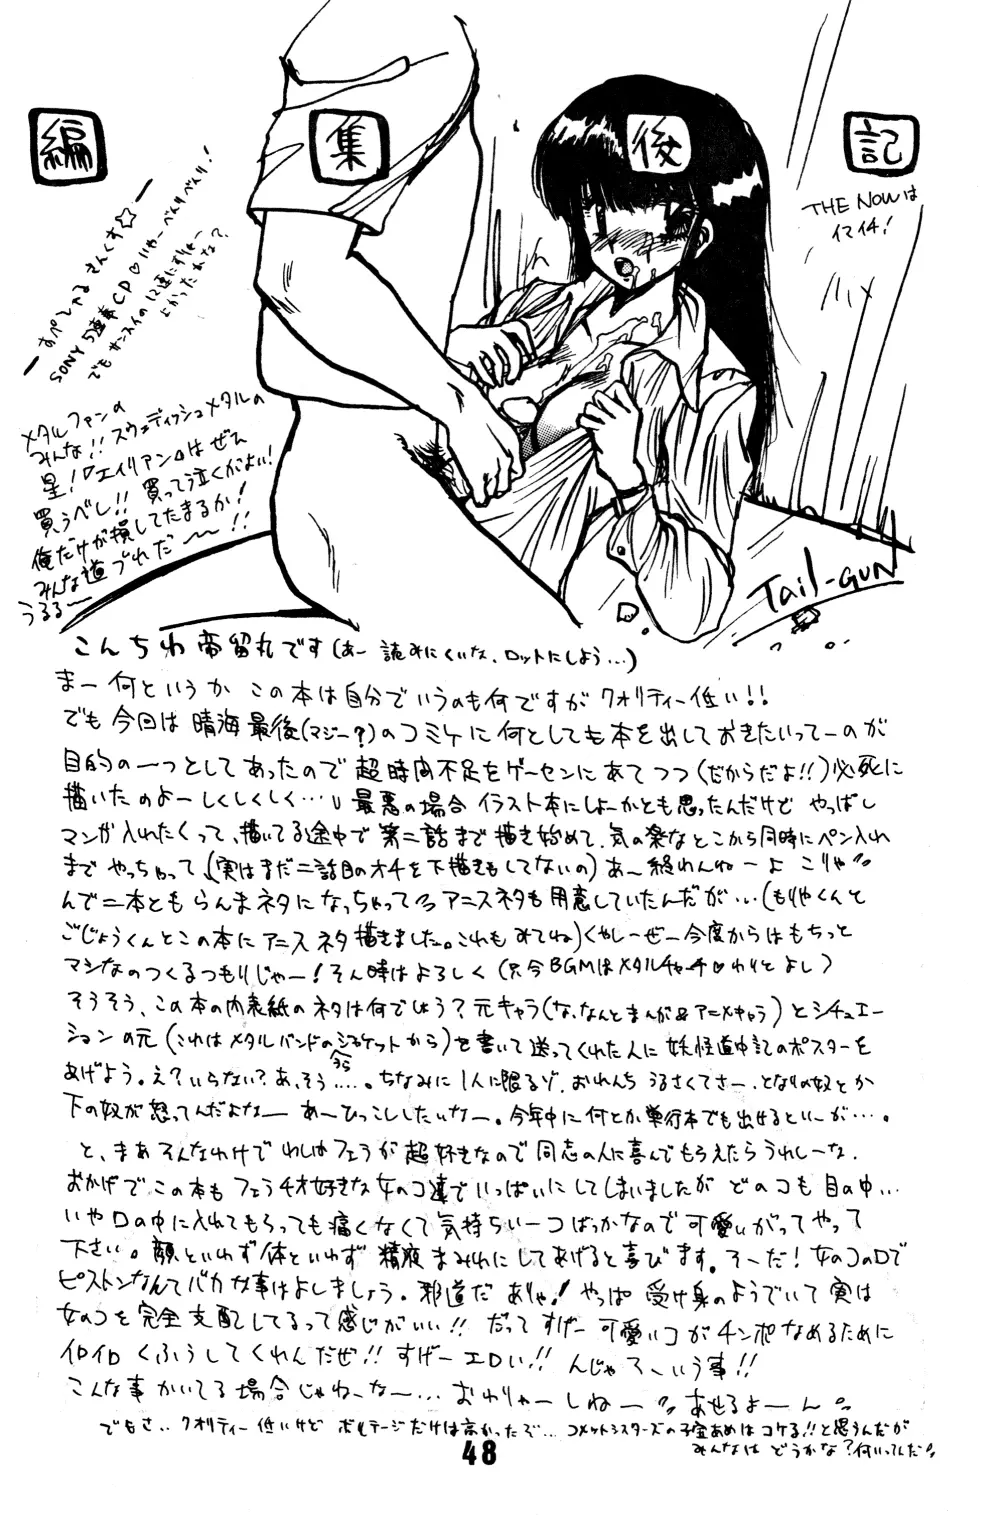 編集後記
THE NOWは
イマイチ!
ー すぺしゃる さんくす☆ ー
SONY 5連奏CD♡いやーべんりべんり!
でも サンスイの12連にすりゃー
よかったかな?
メタルファンの
みんな!!スウェディッシュメタルの
星!『エイリアン』はぜひ
買うべし!!買って泣くがよい!
俺だけが損してたまるか!
みんな道づれだ〜〜!!
うるる〜
Tail-GUN
こんちわ帝留丸です(あー 読みにくいな、ロットにしよう…)
まー何というか この本は自分でいうのも何ですが クオリティー低い!!
でも今回は 晴海最後(マジー?)のコミケに何としても本を出しておきたいってーのが
目的の一つとしてあったので 超時間不足をゲーセンにあてつつ(だからだよ!!)必死に
描いたのよーしくしくしく… 最悪の場合 イラスト本にしよーかとも思ったんだけど やっぱし
マンガ入れたくって、描いてる途中で第二話まで描き始めて、気の楽なとこから同時にペン入れ
まで やっちゃって、(実はまだ二話目のオチを下描きもしてないの)あ〜終わんねーよ こりゃ
んで二本とも らんまネタになっちゃって アニスネタも用意していたんだが…(もりやくんと
ごじょうくんとこの本にアニスネタ描きました。これもみてね)くやしーぜー今度からはもちっと
マシなのつくるつもりじゃー!そん時はよろしく(只今BGMはメタルチャーチ♡わりとよし)
そうそう、この本の内表紙のネタは何でしょう?元キャラ(な、なんとまんが&アニメキャラ)とシチュエー
ションの元(これはメタルバンドのジャケットのうらから)を書いて送ってくれた人に妖怪道中記のポスターを
あげよう。え?いらない?あ、そう…。ちなみに1人に限るゾ。おれんち うるさくてさー、となりの奴とか
下の奴が怒ってんだよなー あーひっこししたいなー。今年中に何とか単行本でも出せるといーが…。
と、まあそんなわけで わしはフェラが超好きなので同志の人に喜んでもらえたらうれしーな。
おかげでこの本も フェラチオ好きな女のコ達でいっぱいにしてしまいましたが どのコも目の中…
いや口の中に入れてもらっても痛くなくて気持ちいーコばっかなので可愛いがってやって
下さい。顔といわず体といわず 精液まみれにしてあげると喜びます。そーだ!女のコの口で
ピストンなんてバカな事はよしましょう。邪道だ ありゃ!やっぱ 受け身のようでいて実は
女のコを完全支配してるって感じがいい!!だってすげー可愛いコがチンポなめるために
イロイロくふうしてくれんだぜ!!すげーエロい!!んじゃて、いう事!!
こんな事かいてる場合じゃねーなー… おわりゃーしねー あせるよーん。
でもさ‥クオリティー低いけど ボルテージだけは高かったぞ… コメットシスターズの子宝あめはコケる!!と思うんだが
みんなは どうかな?何いってんだ
48